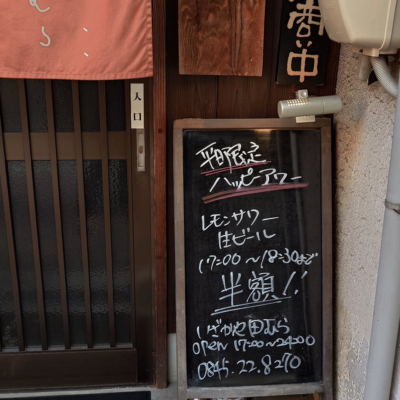 むら
入口
商い中
平日限定
ハッピーアワー
レモンサワー
生ビール
17:00〜18:30まで
半額!!
いざかや田むら
open 17:00〜24:00
0845.22.8270